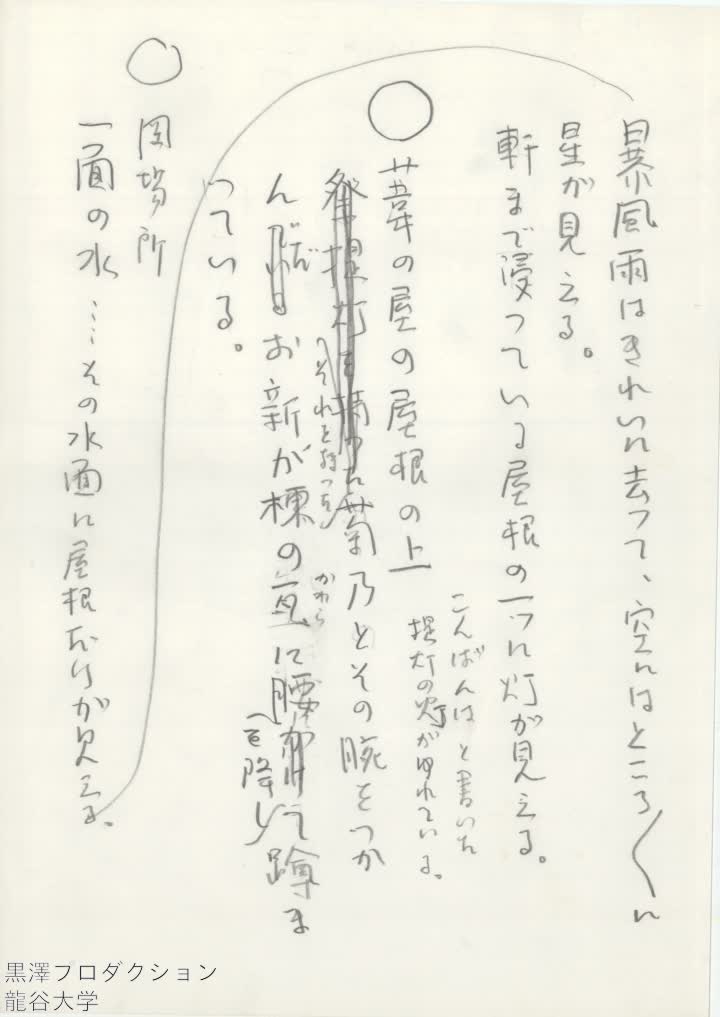 暴風雨はきれいに去つて、空にはところ〴〵に
星が見える。
軒まで浸つている屋根の一つに灯が見える。
こんばんはと書いた
提灯の灯がゆれている。
葦の屋の屋根の上
祭提灯を持つた菊乃とその腕をつか
それを持つた
んだお新が棟の瓦に腰かけて蹲ま
かわら
を降し
つている。
岡場所
一面の水…その水面に屋根だけが見える。
黒澤プロダクション
龍谷大学